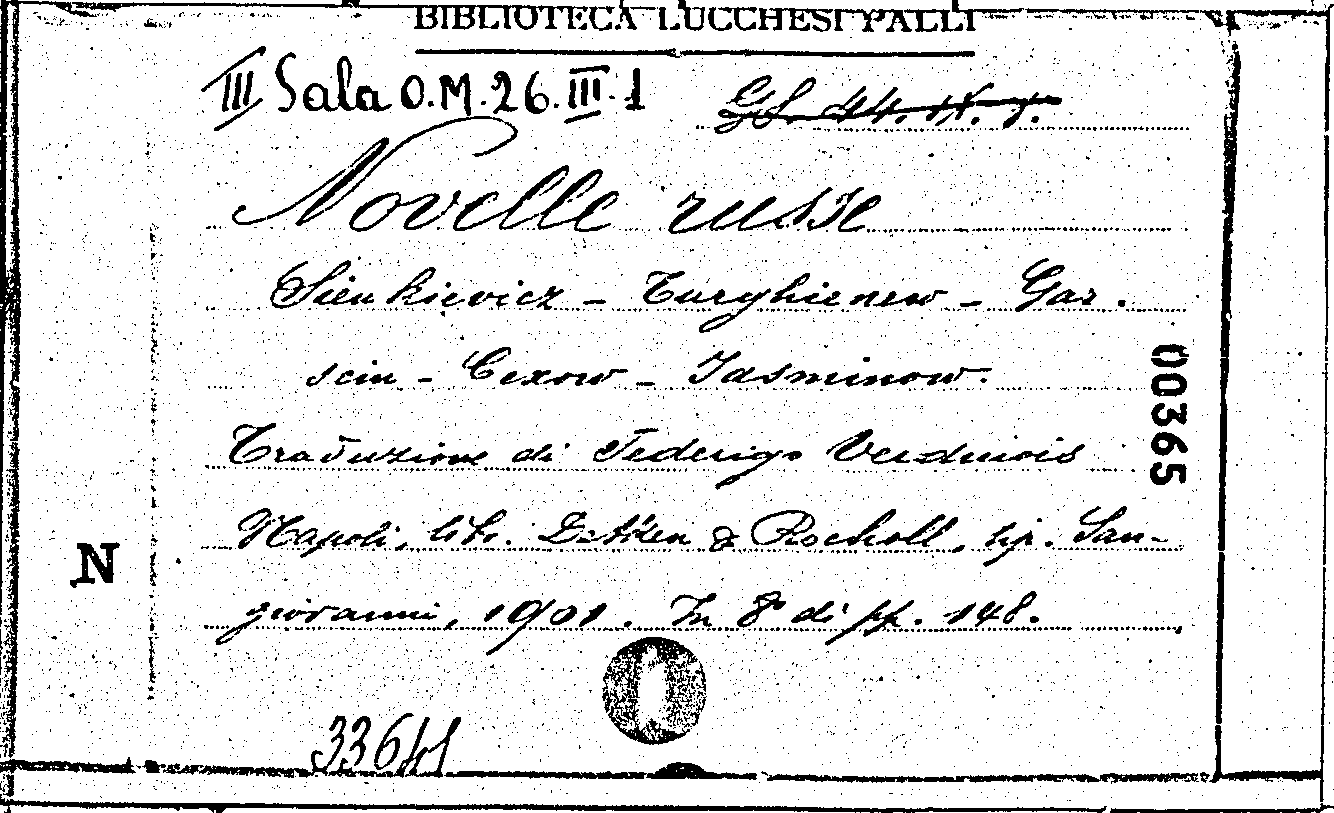 BIBLIOTECA LUCCHESI PALLI
III Sala O.M. 26. III. 1
Novelle russe
Sienkievicz - Turghienew - Gar.
scin - Cexow - Jasminow.
Traduzione di Federigo Verdinois
Napoli, lib. Detken & Rocholl, tip. San-
giovanni, 1901. In 8° di pp. 148.
N
00365